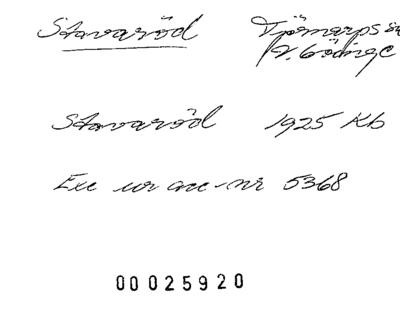 Stavaröd Tjörnarps sn
V. Göinge
Stavaröd 1925 Kb
Exc ur acc-nr 5368
00025920